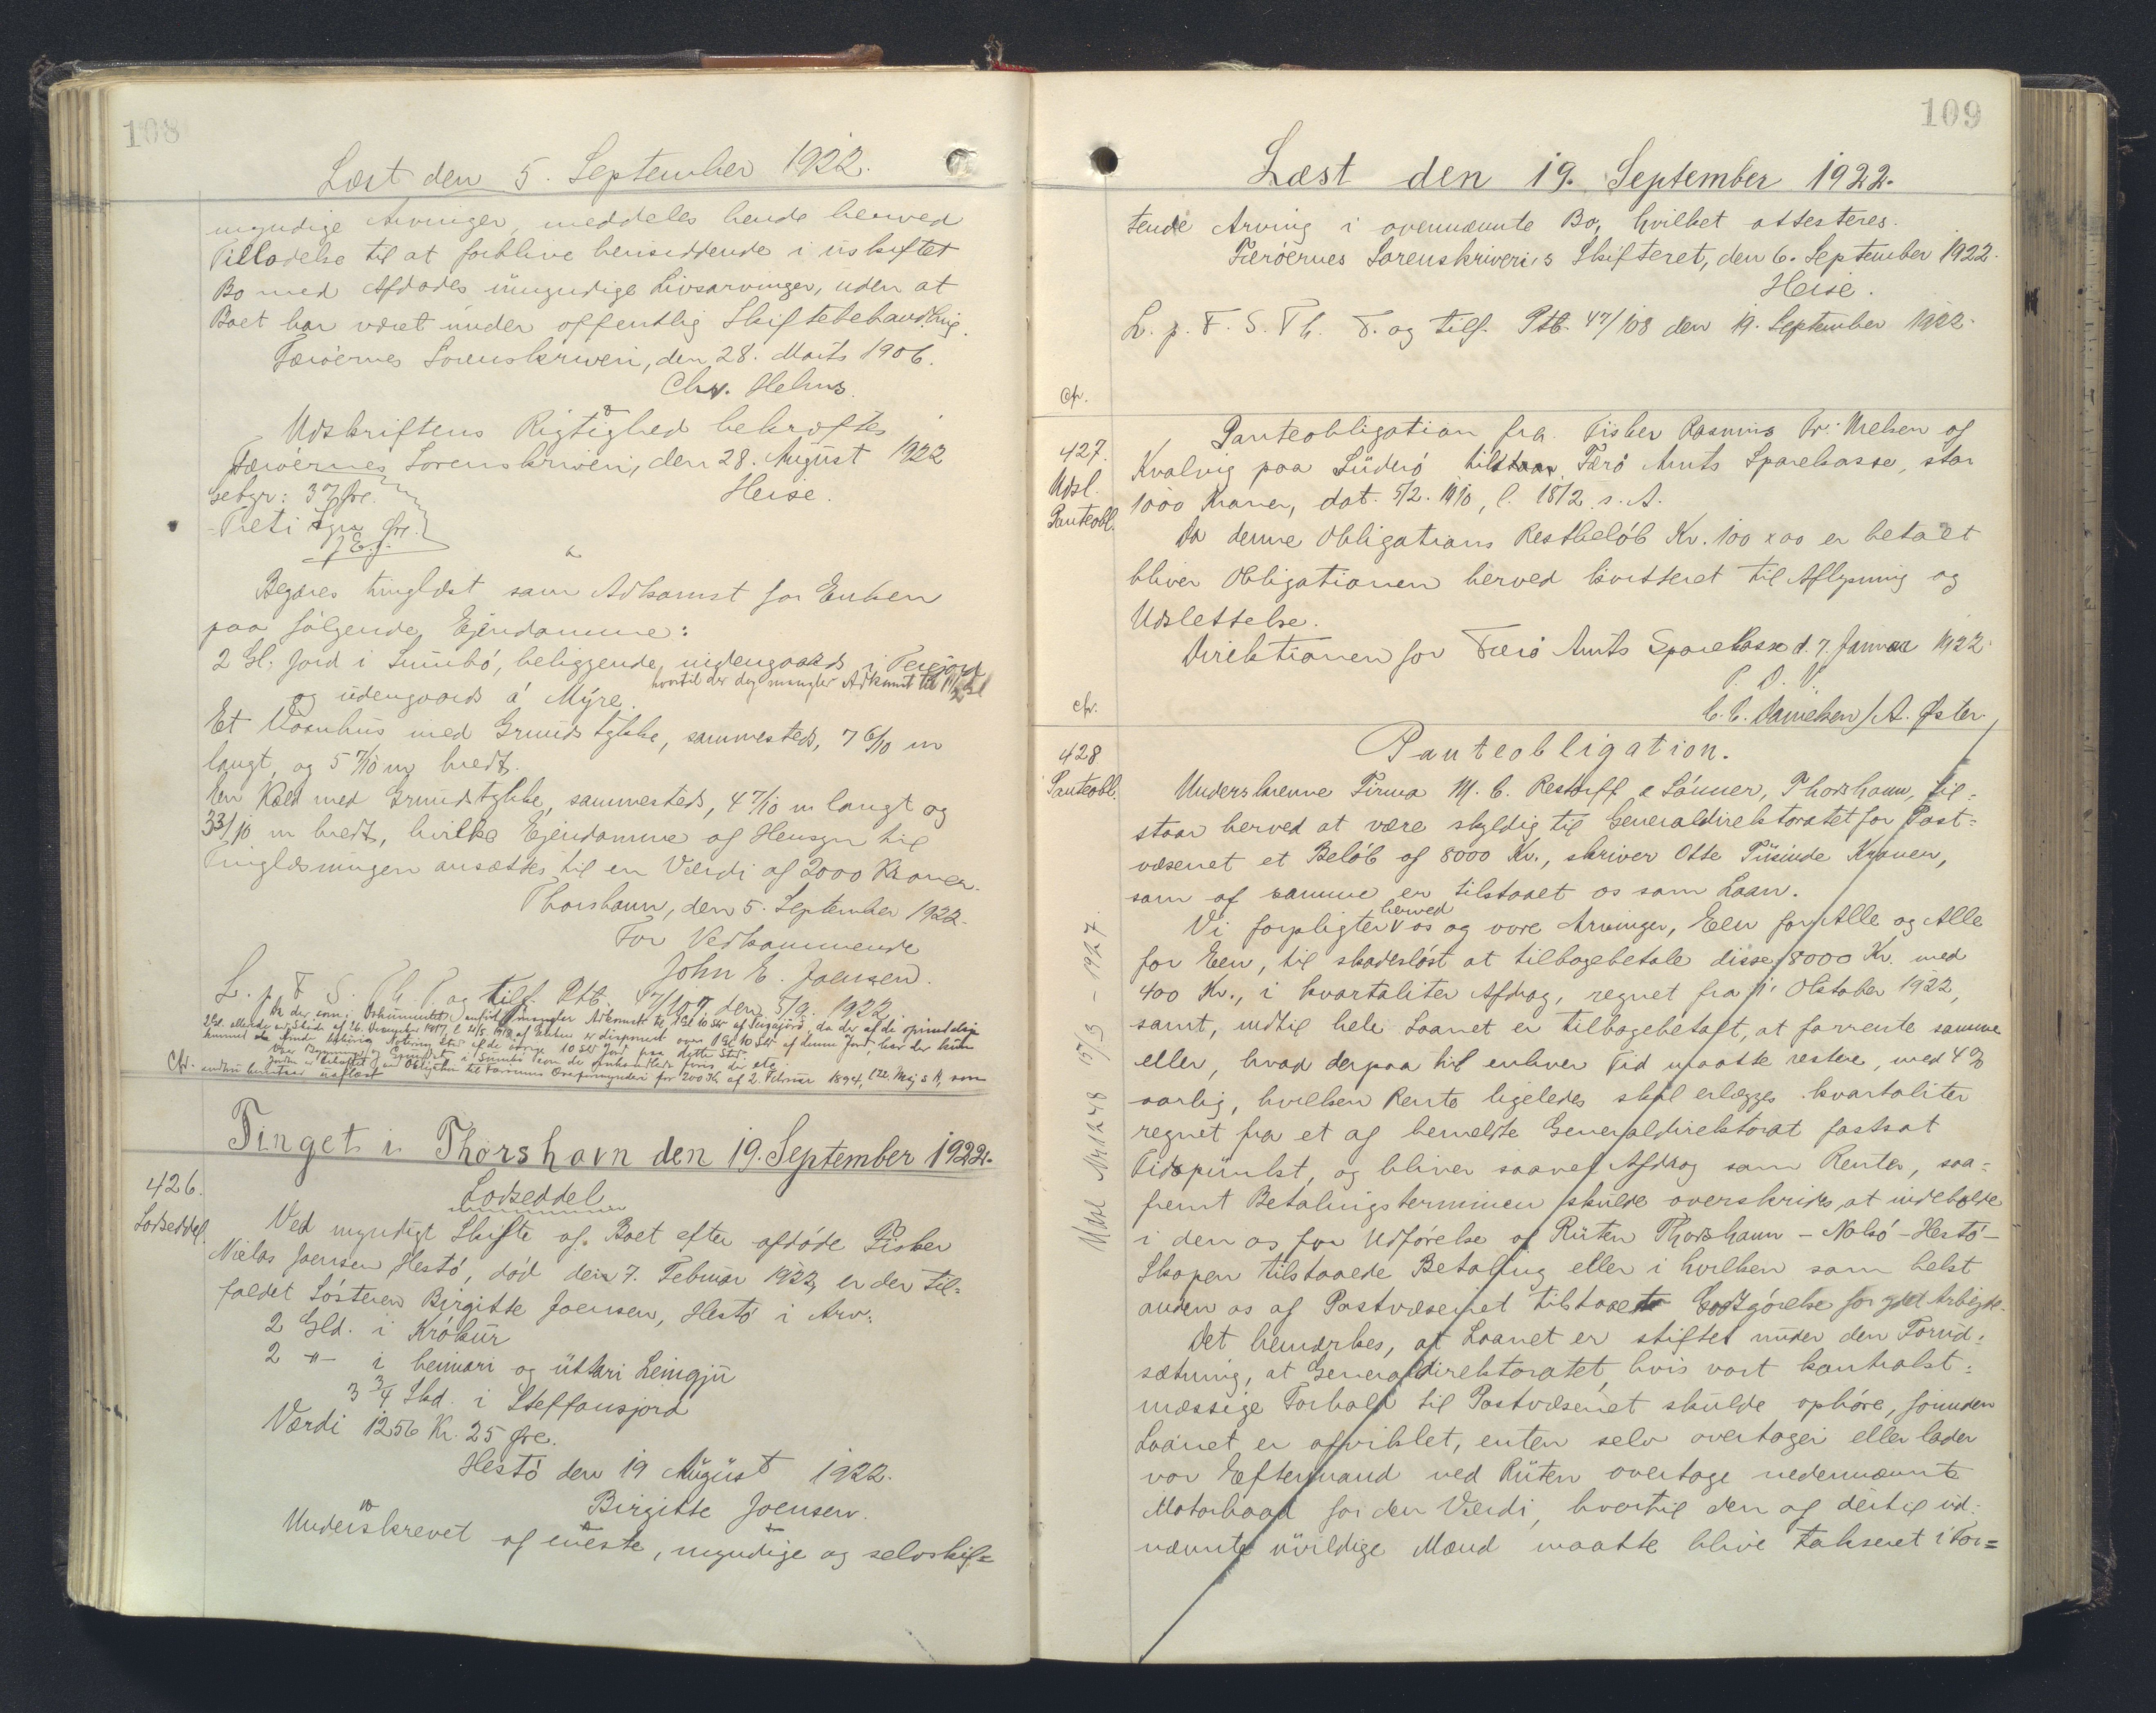 108
Læst den 5. September 1922.
myndige Arvinger, meddeles hende herved
Tilladelse til at forblive hensiddende i uskiftet
Bo med Afdødes umyndige Livsarvinger, uden at
Boet har været under offentlig Skiftebehandling.
Færøernes Sorenskriveri, den 28. Marts 1906.
Chr. Helms.
Udskriftens Rigtighed bekræftes
Færøernes Sorenskriveri, den 28. August 1922
Heise.
Gebyr: 37 Øre.
Treti Syv Øre.
Begæres tinglæst som Adkomst for Enken
paa følgende Ejendomme:
2 Gl. Jord i Sumbø, beliggende indengaards i
hvortil der dog mangler Adkomst til
og udengaards á Mýre.
Et Vaanhus med Grundstykke, sammesteds, 7 6/10 m
langt, og 5 7/10 m bredt.
En Kæld med Grundstykke, sammesteds, 4 7/10 m langt og
3 3/10 m bredt, hvilke Ejendomme af Hensyn til
Tinglæsningen ansættes til en Værdi af 2000 Kroner.
Thorshavn, den 5. September 1922.
For Vedkommende
John E. Joensen.
L. p. F. S. Th. T. og tilf. Ptb. 47/107 den 5/9. 1922.
Chr.
Tinget i Thorshavn den 19. September 1922.
426.
Lodseddel.
Lodseddel
Ved myndigt Skifte af Boet efter afdøde Fisker
Nielas Joensen Hestø, død den 7. Februar 1922, er der til-
faldet Søsteren Birgitte Joensen, Hestø i Arv:
2 Gld. i Krókur
2 -"- i heimari og úttari Leingju
3 3/4 Skd. i Steffansjord
Værdi 1256 Kr. 25 Øre.
Hestø den 19 August 1922.
Birgitte Joensen.
Underskrevet af eneste, myndige og selvskif=
109
Læst den 19. September 1922.
tende Arving i ovennævnte Bo, hvilket attesteres.
Færøernes Sorenskriveri's Skifteret, den 6. September 1922.
Heise.
L. p. F. S. Th. T. og tilf. Ptb. 47/108 den 19. September 1922.
Chr.
427.
Udsl.
Panteobl.
Panteobligation fra Fisker Rasmus Fr. Nielsen af
Kvalvig paa Suderø til Færø Amts Sparekasse, stor
1000 Kroner, dat. 5/2. 1910, l. 18/2 s. A.
Da denne Obligations Restbeløb Kr. 100 x 00 er betalt
bliver Obligationen herved kvitteret til Aflysning og
Udslettelse.
Direktionen for Færø Amts Sparekasse d. 7. Januar 1922.
P. D. V.
C. C. Danielsen / A. Øster.
Chr.
428
Panteobl.
Panteobligation.
Underskrevne Firma M. C. Restorff & Sønner, Thorshavn, til=
staar herved at være skyldig til Generaldirektoratet for Post=
væsenet et Beløb af 8000 Kr., skriver Otte Tusinde Kroner,
som af samme er tilstaaet os som Laan.
herved
Vi forpligter os og vore Arvinger, Een for Alle og Alle
for Een, til skadesløst at tilbagebetale disse 8000 Kr. med
400 Kr., i kvartaliter Afdrag, regnet fra 1' Oktober 1922,
samt, indtil hele Laanet er tilbagebetalt, at forrente samme
eller, hvad derpaa til enhver Tid maatte restere, med 4%
aarlig, hvilken Rente ligeledes skal erlægges kvartaliter
regnet fra et af bemeldte Generaldirektorat fastsat
Tidspunkt, og bliver saavel Afdrag som Renter, saa=
fremt Betalingsterminen skulde overskrides, at indeholde
i den os for Udførelse af Ruten Thorshavn - Nolsø - Hestø -
Skopen tilstaaede Betaling eller i hvilken som helst
anden os af Postvæsenet tilstaaet Godtgørelse for ydet Arbejde.
Det bemærkes, at Laanet er stiftet under den Forud=
sætning, at Generaldirektoratet, hvis vort kontrakt=
mæssige Forhold til Postvæsenet skulde ophøre, forinden
Laanet er afviklet, enten selv overtager eller lader
vor Eftermand ved Ruten overtage nedennævnte
Motorbaad for den Værdi, hvortil den af dertil ud-
nævnte uvildige Mænd maatte blive takseret i For=
Udsl Nr 1248 15/3 - 1927.